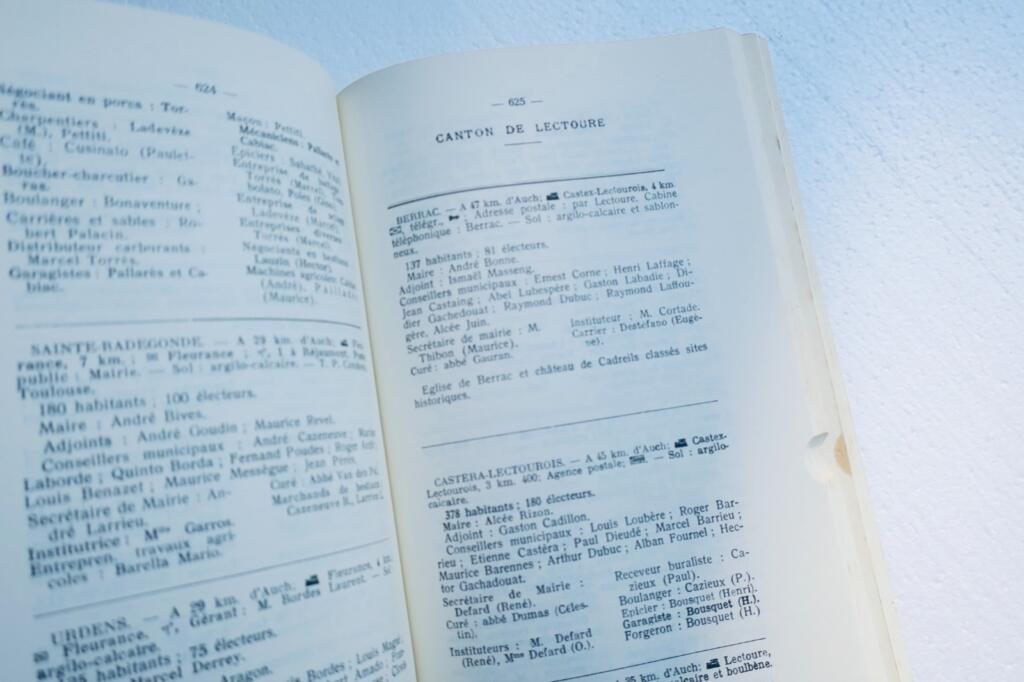 — 624 —
Négociant en porcs : Tor-
rès.
Charpentiers : Ladevèze
(M.), Pettiti.
Café : Cusinato (Paulet-
te).
Boucher-charcutier : Ga-
ras.
Boulanger : Bonaventure ;
Carrières et sables : Ro-
bert Palacin.
Distributeur carburants :
Marcel Torrès.
Garagistes : Pallarès et Ca-
biac.
Maçon : Pettiti.
Mécaniciens : Pallarès et
Cabiac.
Epiciers : Sabathé,
Entreprise de
Torrès (Marcel),
bolato, Poles
Entreprise de
Ladevèze (Marcel).
Entreprises diverses
Torrès (Marcel).
Négociants en bestiaux
Lauzin (Hector).
Machines agricoles:
(André), Pallarès
(Maurice).
SAINTE-RADEGONDE. — A 29 km. d'Auch;
rance, 7 km. ; Fleurance ; 1 à Réjaumont,
public : Mairie. — Sol : argilo-calcaire. — T. P.
Toulouse.
180 habitants ; 100 électeurs.
Maire : André Bives.
Adjoints : André Goudin ; Maurice Revel.
Conseillers municipaux : André Cazeneuve ;
Laborde ; Quinto Borda ; Fernand Poudes ; Roger
Louis Benazet ; Maurice Messègue ; Jean Pérès.
Secrétaire de Mairie : An-
dré Larrieu.
Institutrice : Mme Garros.
Entrepren. travaux agri-
coles : Barella Mario.
Curé : Abbé Van
Marchands de bestiaux
Cazeneuve B., Larrieu
URDENS. — A 29 km. d'Auch, Fleurance, 4 km.
Fleurance, Gérant : M. Bordes Laurent. — Sol
argilo-calcaire.
habitants ; 75 électeurs.
Derrey.
Aragon.
Bordes ; Louis
Amado ;
— 625 —
CANTON DE LECTOURE
BERRAC. — A 47 km. d'Auch; Castex-Lectourois, 4 km.
télégr., : Adresse postale : par Lectoure. Cabine
téléphonique : Berrac. — Sol : argilo-calcaire et sablon-
neux.
137 habitants ; 81 électeurs.
Maire : André Bonne.
Adjoint : Ismaël Masseng.
Conseillers municipaux : Ernest Corne ; Henri Laffage ;
Jean Castaing ; Abel Lubespère ; Gaston Labadie ; Di-
dier Gachedouat ; Raymond Dubuc ; Raymond Laffou-
gère, Alcée Juin.
Secrétaire de mairie : M.
Thibon (Maurice).
Curé : abbé Gauran.
Instituteur : M. Cortade.
Carrier : Destéfano (Eugè-
ne).
Eglise de Berrac et château de Cadreils classés sites
historiques.
CASTERA-LECTOUROIS. — A 45 km. d'Auch; Castex-
Lectourois, 3 km. 400; Agence postale; — Sol : argilo-
calcaire.
378 habitants ; 180 électeurs.
Maire : Alcée Rizon.
Adjoint : Gaston Cadillon.
Conseillers municipaux : Louis Loubère ; Roger Bar-
rieu ; Etienne Castéra ; Paul Dieudé ; Marcel Barrieu ;
Maurice Barennes ; Arthur Dubuc ; Alban Fournel ; Hec-
tor Gachadouat.
Secrétaire de Mairie :
Defard (René).
Curé : abbé Dumas (Céles-
tin).
Instituteurs : M. Defard
(René), Mme Defard (O.).
Receveur buraliste : Ca-
zieux (Paul).
Boulanger : Cazieux (P.).
Epicier : Bousquet (Henri).
Garagiste : Bousquet (H.).
Forgeron : Bousquet (H.)
A 35 km. d'Auch; Lectoure,
calcaire et boulbène.